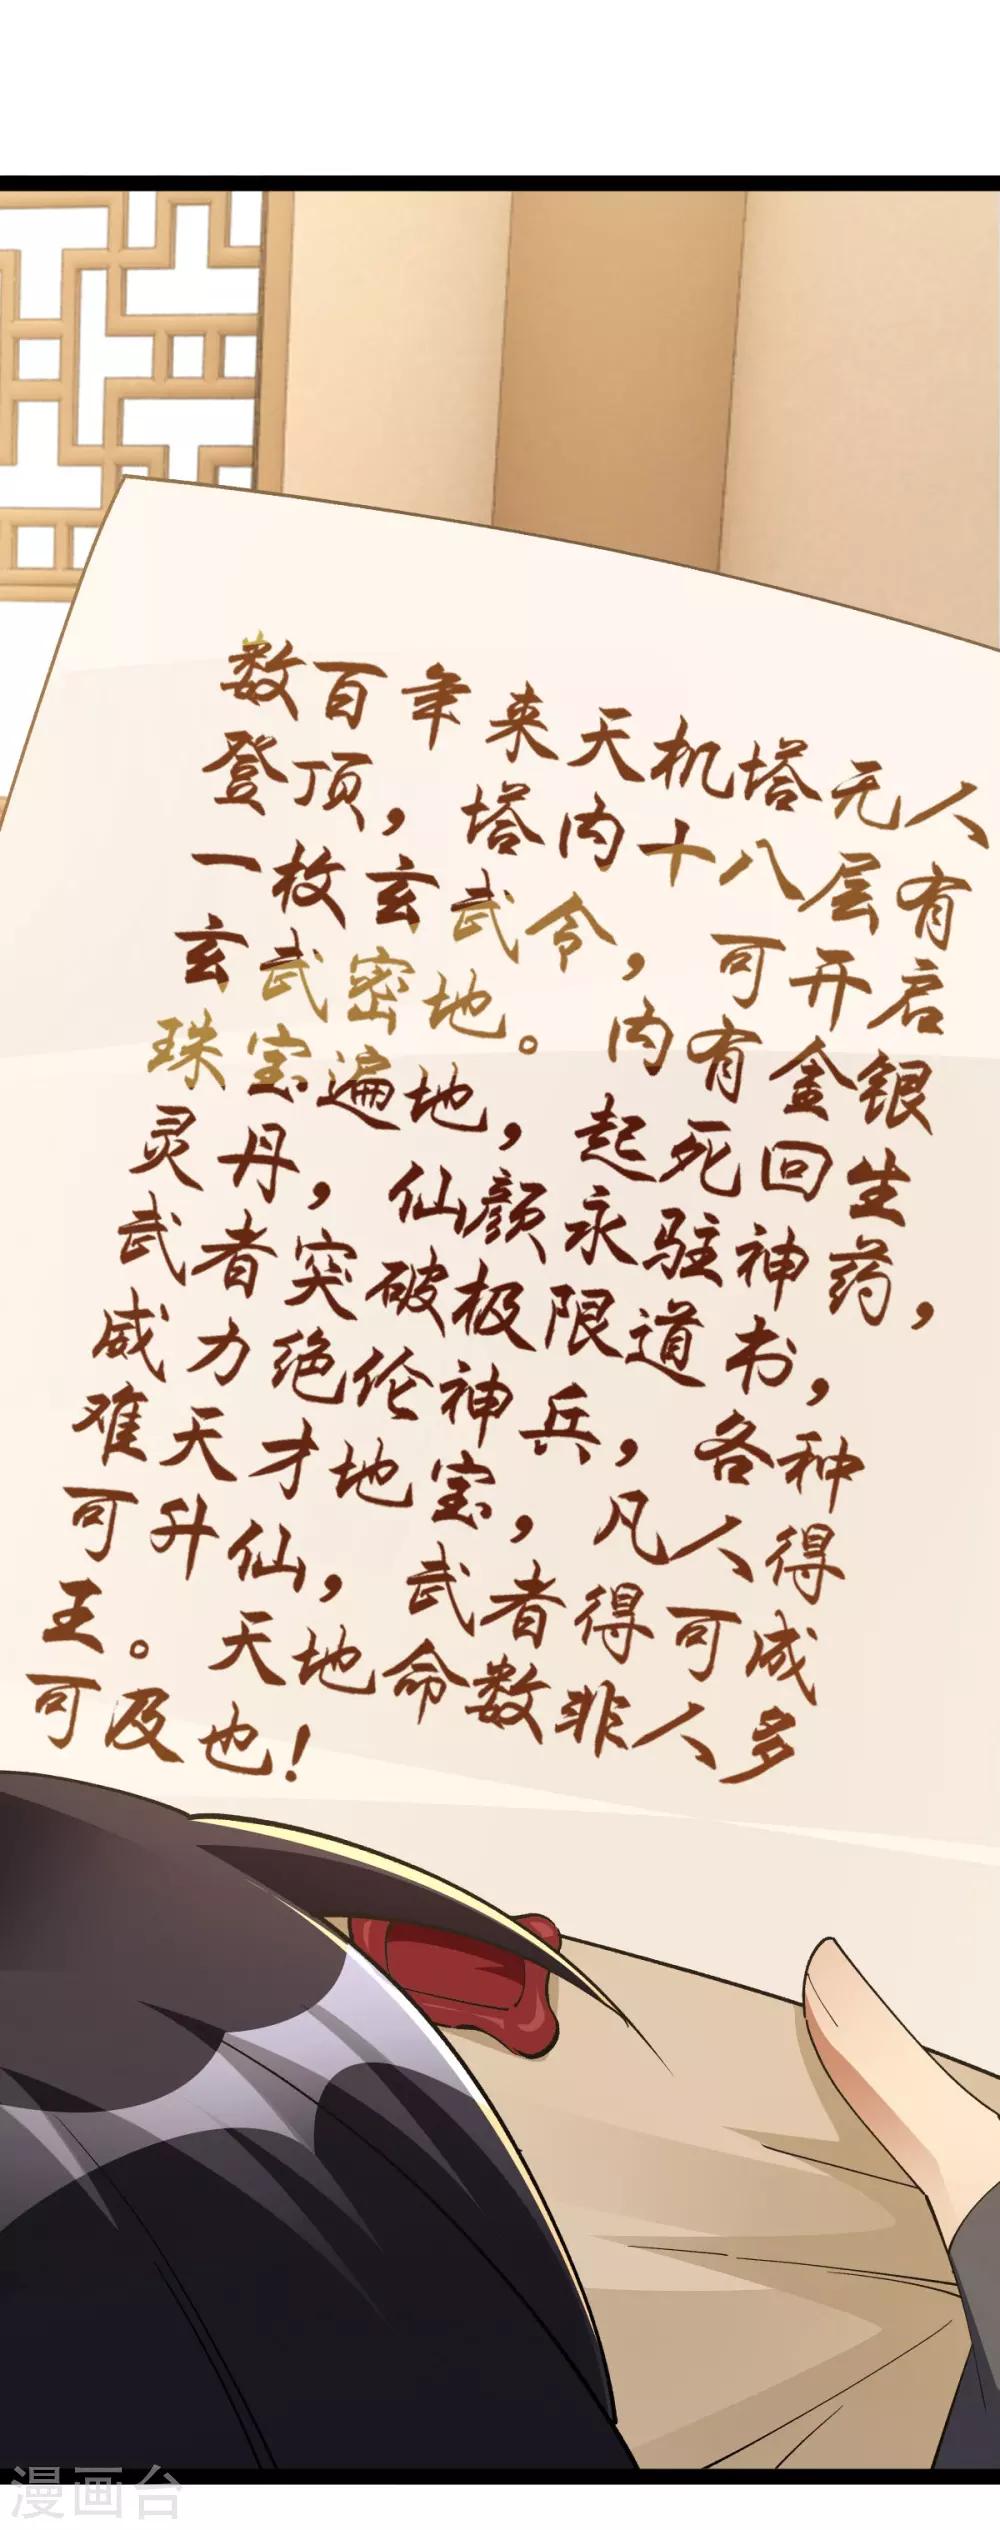 数百年来天机塔无人
登顶，塔内十八层有
一枚玄武令，可开启
玄武密地。内有金银
珠宝遍地，起死回生
灵丹，仙颜永驻神药，
武者突破极限道书，
威力绝伦神兵，各种
难天才地宝，凡人得
可升仙，武者得可成
王。天地命数非人多
可及也！
漫画台